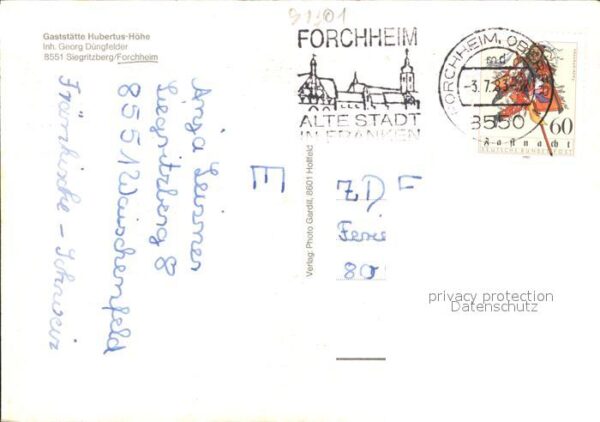 91301
Gaststätte Hubertus-Höhe
Inh. Georg Düngfelder
8551 Siegritzberg/Forchheim
Fränkische - Schweiz
Anja Leisner
Siegritzberg 8
8551 Waischenfeld
E
Verlag: Photo Gardill, 8601 Hollfeld
FORCHHEIM
ALTE STADT
IN FRANKEN
FORCHHEIM, OBERFR
md
-3.7.83-
8550
60
Fastnacht
DEUTSCHE BUNDESPOST
ZDF
Ferie
80
privacy protection
Datenschutz